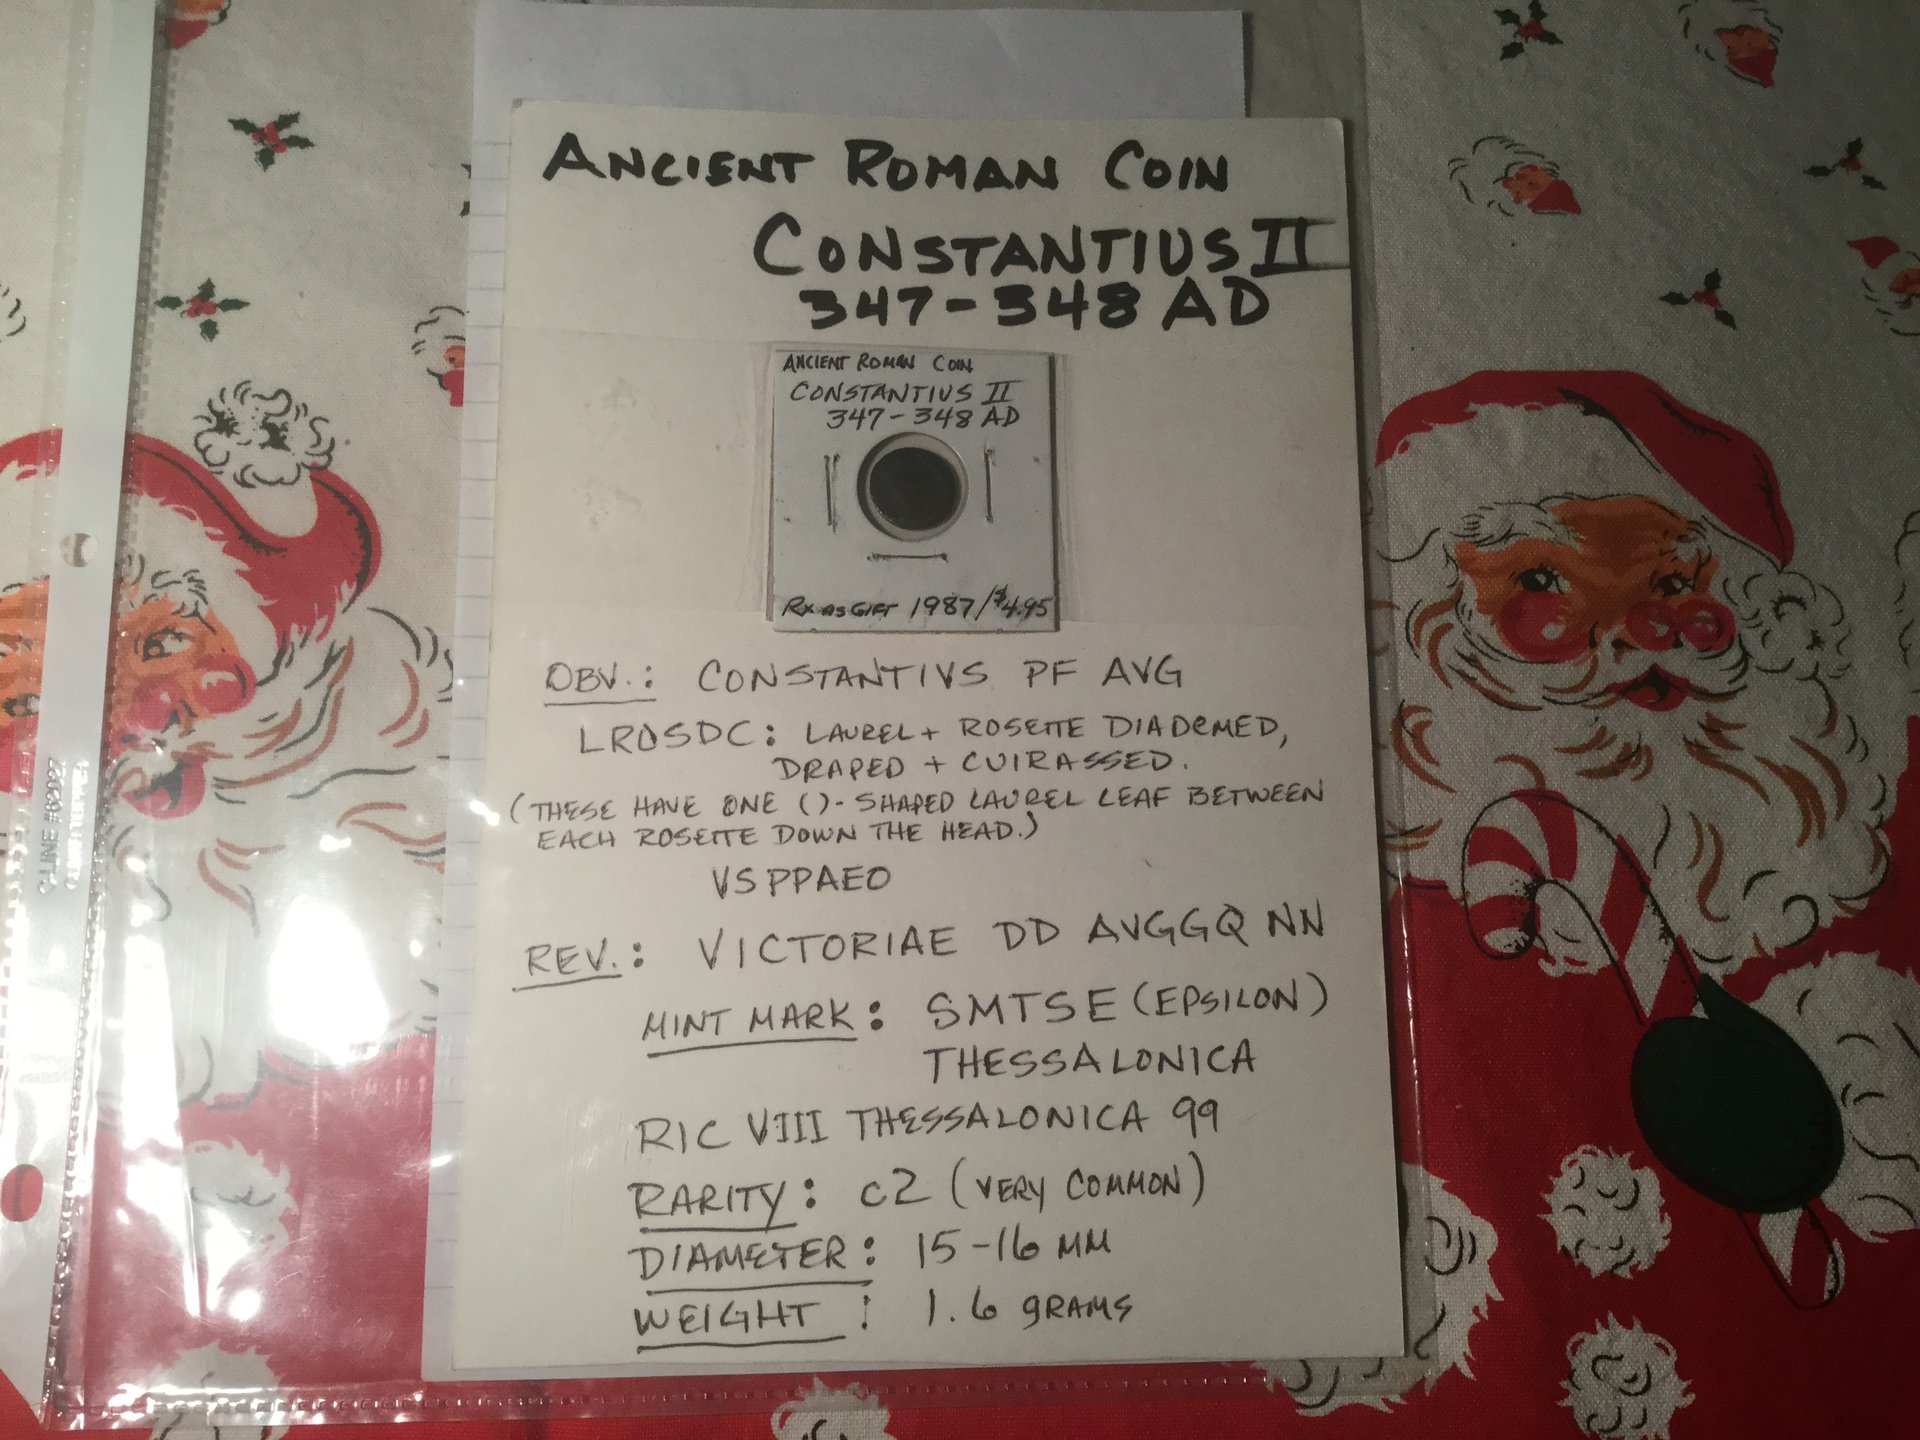 ANCIENT ROMAN COIN
CONSTANTIUS II
347-348 AD
ANCIENT ROMAN COIN
CONSTANTIUS II
347-348 AD
RX AS GIFT 1987/$4.95
OBV.: CONSTANTIVS PF AVG
LROSDC: LAUREL + ROSETTE DIADEMED,
DRAPED + CUIRASSED.
(THESE HAVE ONE ()-SHAPED LAUREL LEAF BETWEEN
EACH ROSETTE DOWN THE HEAD.)
VSPPAEO
REV.: VICTORIAE DD AVGGQ NN
MINT MARK: SMTSE (EPSILON)
THESSALONICA
RIC VIII THESSALONICA 99
RARITY: c2 (VERY COMMON)
DIAMETER: 15-16 MM
WEIGHT: 1.6 gRAMS
C-LINE #62027